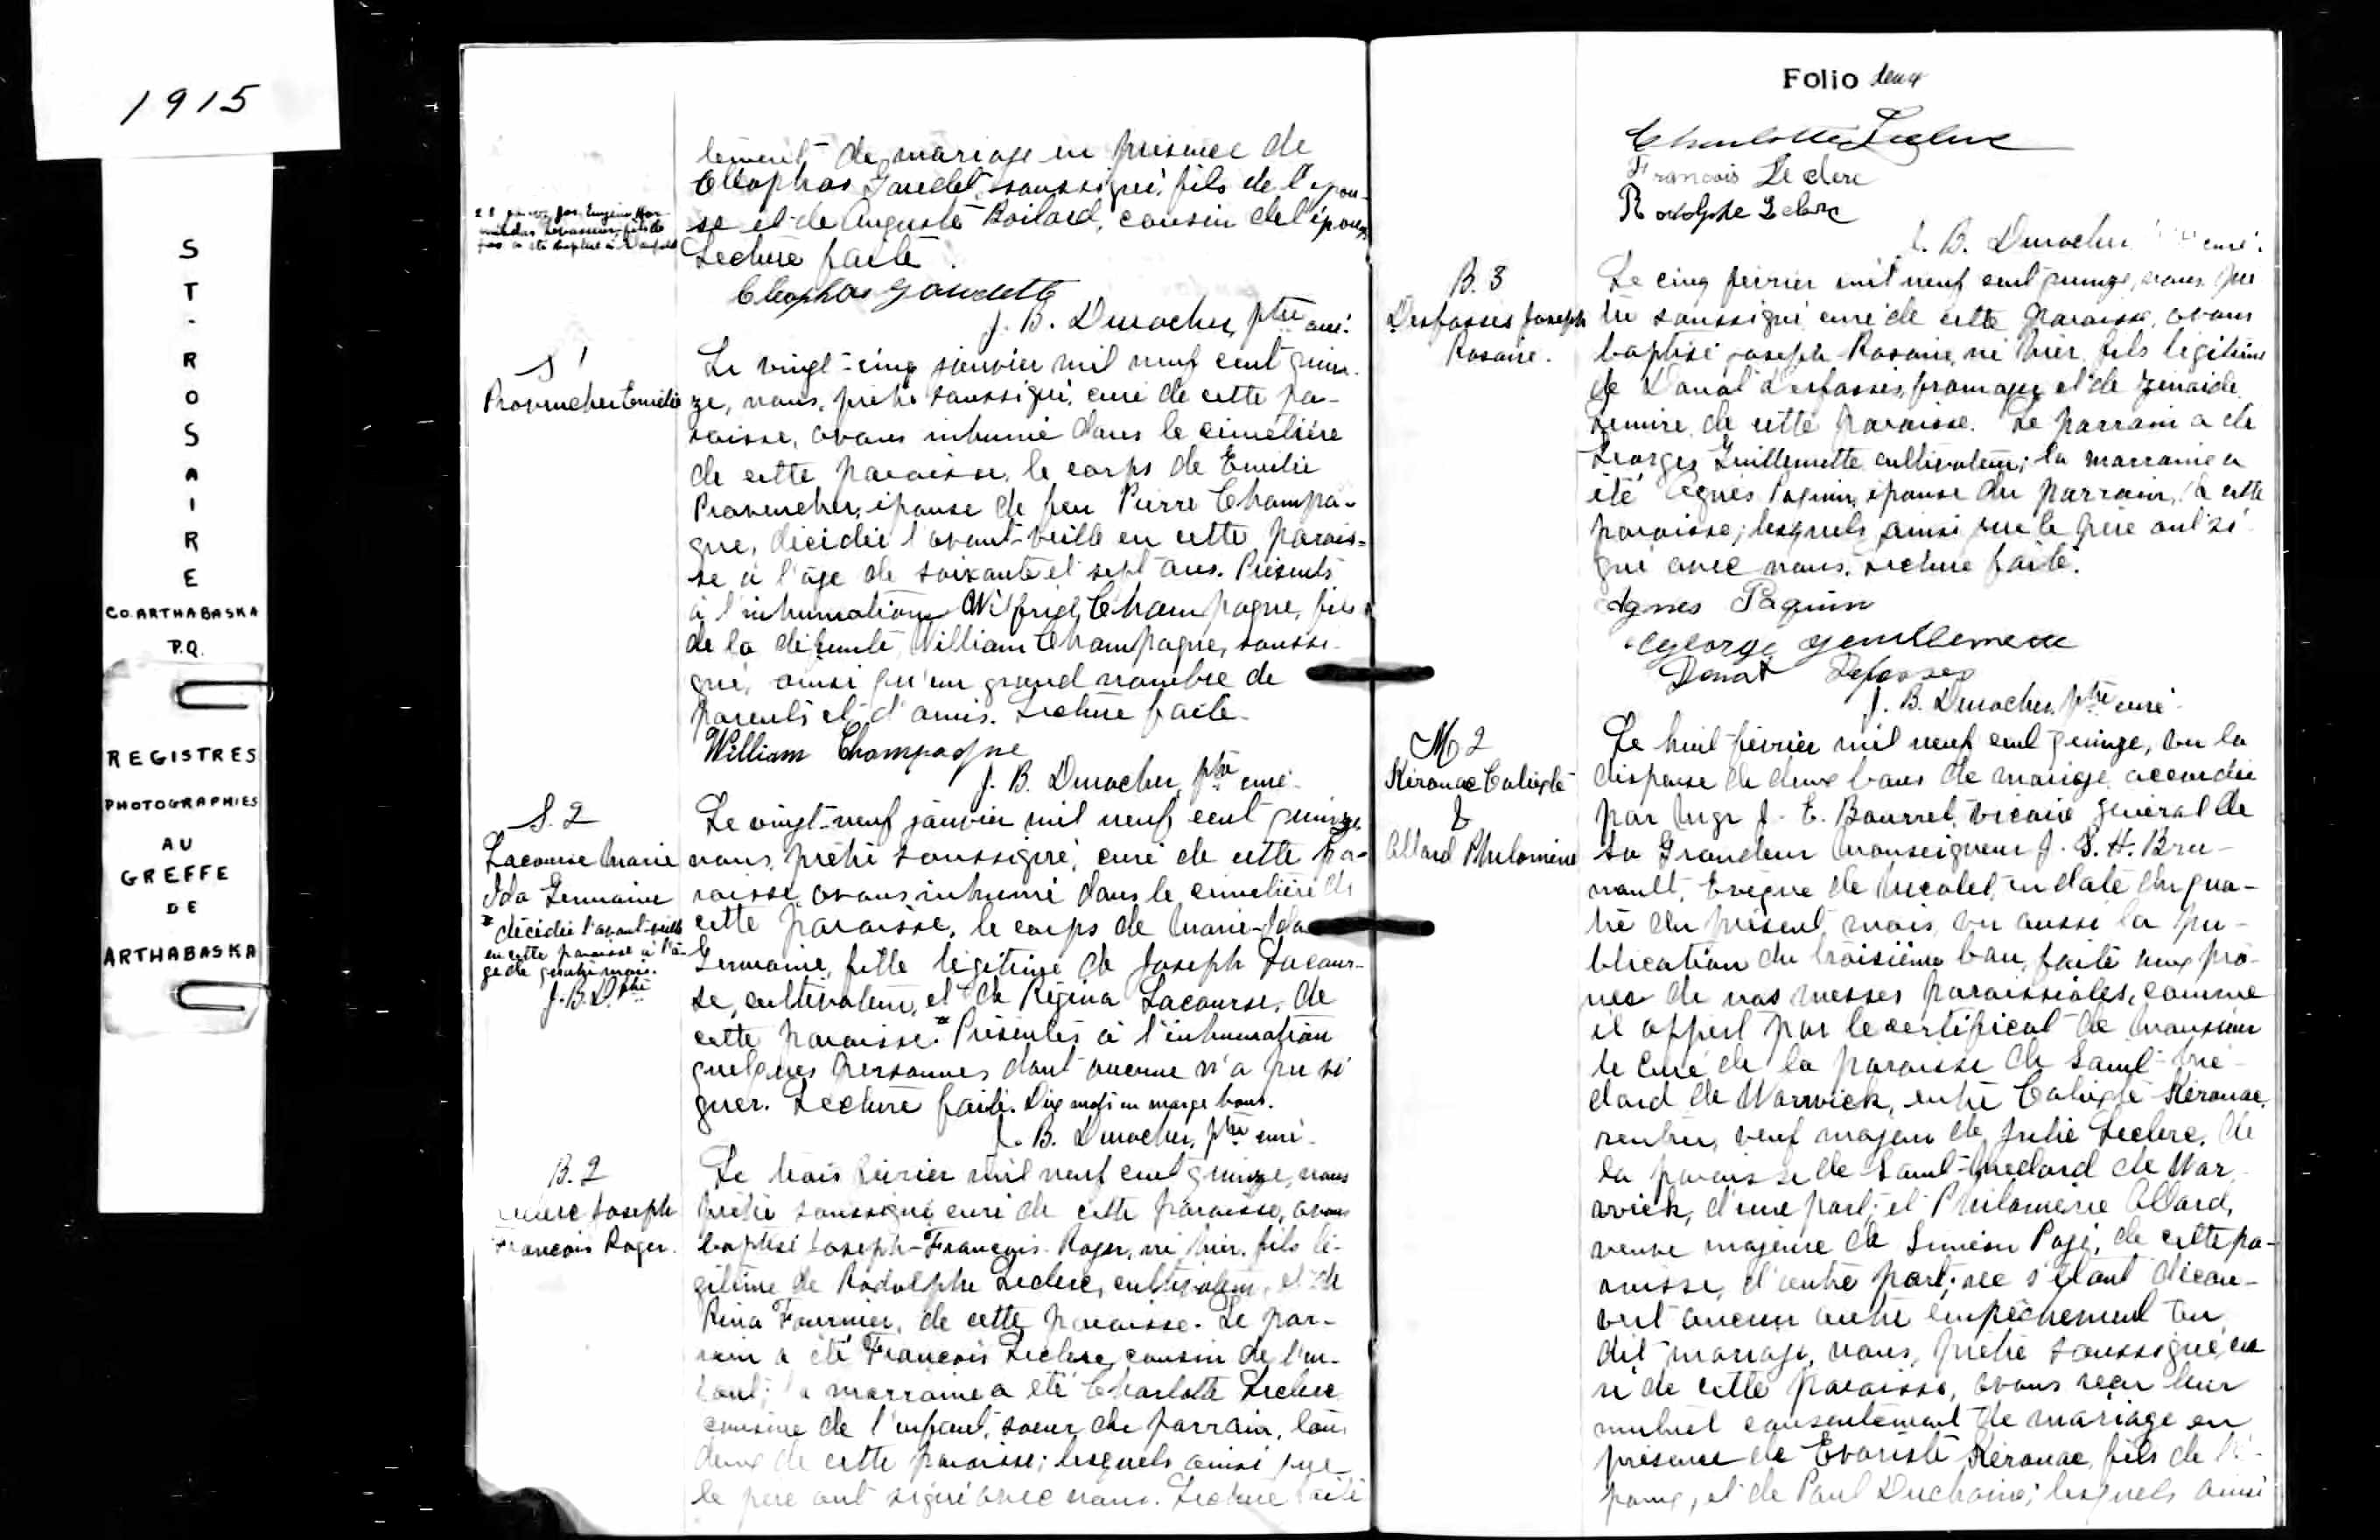 1915
ST-ROSAIRE
CO. ARTHABASKA
P.Q.
REGISTRES
PHOTOGRAPHIES
AU
GREFFE
DE
ARTHABASKA
tement de mariage en présence de
Cléophas Gaudet soussigné, fils de l'épou-
se et de Auguste Boilard, cousin de l'époux
Lecture faite.
Cleophas Gaudette
J. B. Durocher, ptre curé.
S 1
Provencher Emilie
Le vingt-cinq janvier mil neuf cent quin-
ze, nous, prêtre soussigné, curé de cette pa-
roisse, avons inhumé dans le cimetière
de cette paroisse, le corps de Emilie
Provencher, épouse de feu Pierre Champa-
gne, décédée l'avant-veille en cette parois-
se à l'âge de soixante et sept ans. Présents
à l'inhumation Wilfrid Champagne, fils
de la défunte, William Champagne, soussi-
gné, ainsi qu'un grand nombre de
parents et d'amis. Lecture faite.
William Champagne
J. B. Durocher, ptre curé.
S. 2
Lacourse Marie
Ida Germaine
* décédée l'avant-veille
en cette paroisse à l'â-
ge de quatre mois.
J.B.D. ptre
Le vingt-neuf janvier mil neuf cent quinze,
nous, prêtre soussigné, curé de cette pa-
roisse, avons inhumé dans le cimetière de
cette paroisse, le corps de Marie-Ida
Germaine, fille légitime de Joseph Lacour-
se, cultivateur, et de Régina Lacourse, de
cette paroisse.* Présentes à l'inhumation
quelques personnes dont aucune n'a pu si
gner. Lecture faite. Dix mots en marge bons.
J. B. Durocher, ptre curé.
B. 2
Leclerc Joseph
François Roger.
Le trois février mil neuf cent quinze, nous
prêtre soussigné, curé de cette paroisse, avons
baptisé Joseph-François-Roger, né hier, fils lé-
gitime de Rodolphe Leclerc, cultivateur, et de
Rina Fournier, de cette paroisse. Le par-
rain a été François Leclerc, cousin de l'en-
fant; la marraine a été Charlotte Leclerc
cousine de l'enfant, soeur du parrain, tous
deux de cette paroisse; lesquels ainsi que
le père ont signé avec nous. Lecture faite
Folio deux
Charlotte Leclerc
Francois Leclerc
Rodolphe Leclerc
J. B. Durocher curé.
B. 3
Desfossés Joseph
Rosaire.
Le cinq février mil neuf cent quinze, nous, prê
tre soussigné, curé de cette paroisse, avons
baptisé Joseph-Rosaire, né hier, fils légitime
de Donat Desfossés, fromager et de Zénaide
Lemire, de cette paroisse. Le parrain a été
Georges Guillemette, cultivateur; la marraine a
été Agnès Paquin, épouse du parrain, de cette
paroisse; lesquels ainsi que le père ont si
gné avec nous. Lecture faite.
Agnes Paquin
George
Donat
J. B. Durocher, ptre curé.
M 2
Kérouac Calixte
&
Allard Philomène
Le huit février mil neuf cent quinze, vu la
dispense de deux bans de mariage accordée
par Mgr J. E. Bourret, vicaire général de
Sa Grandeur Monseigneur J. S. H. Bru-
nault, Evêque de Nicolet, en date du qua-
tre du présent mois, vu aussi la pu-
blication du troisième ban, faite aux prô-
nes de nos messes paroissiales, comme
il appert par le certificat de Monsieur
le curé de la paroisse de Saint-Mé-
dard de Warwick, entre Calixte Kérouac,
rentier, veuf majeur de Julie Leclerc, de
la paroisse de Saint-Médard de War-
wick, d'une part; et Philomène Allard,
veuve majeure de Siméon Pagé, de cette pa-
roisse, d'autre part; ne s'étant décou-
vert aucun autre empêchement au
dit mariage, nous, prêtre soussigné, cu
ré de cette paroisse, avons reçu leur
mutuel consentement de mariage en
présence de Evariste Kérouac, fils de l'é-
poux, et de Paul Duchaine; lesquels ainsi